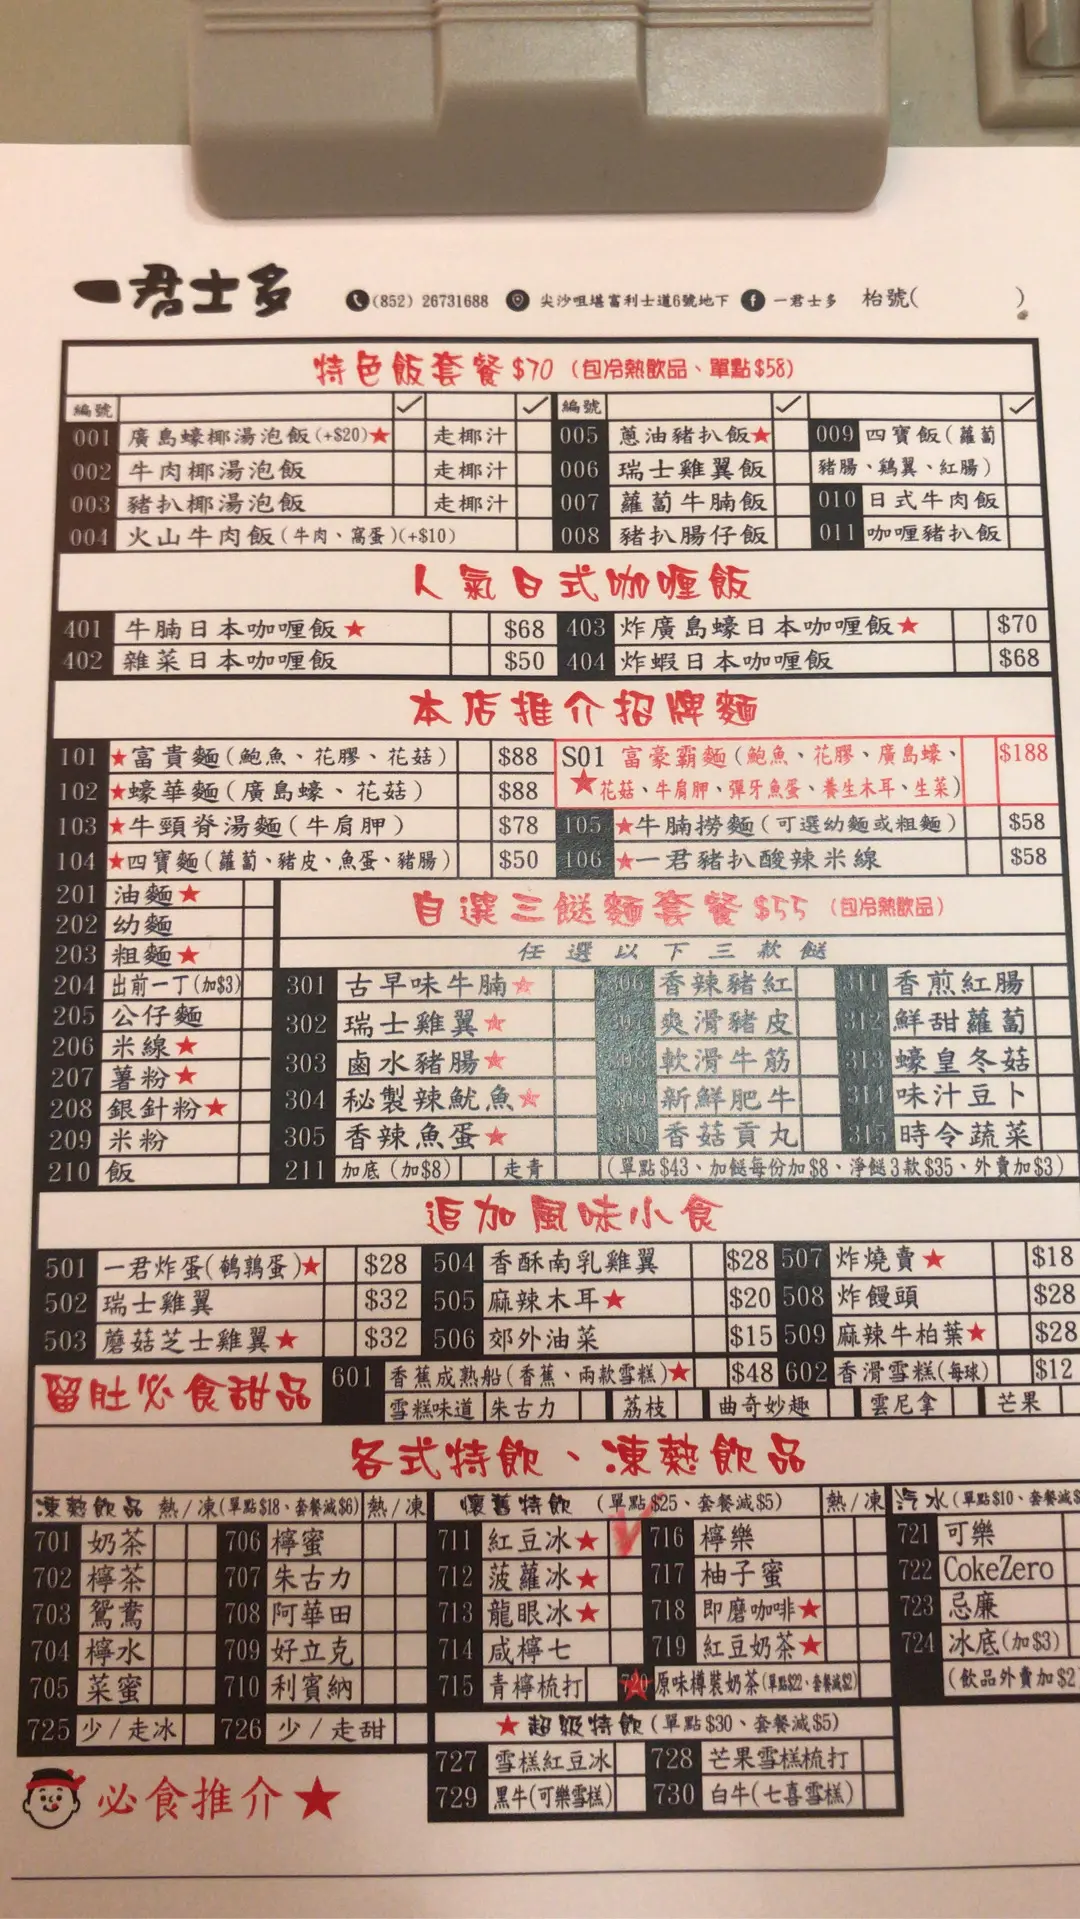 一君士多 (852) 26731688 尖沙咀堪富利士道6號地下 一君士多 枱號( )
特色飯套餐 $70 (包冷熱飲品、單點$58)
編號 編號
001 廣島蠔椰湯泡飯(+$20)★ 走椰汁 005 蔥油豬扒飯★ 009 四寶飯(蘿蔔
002 牛肉椰湯泡飯 走椰汁 006 瑞士雞翼飯 豬腸、鷄翼、紅腸)
003 豬扒椰湯泡飯 走椰汁 007 蘿蔔牛腩飯 010 日式牛肉飯
004 火山牛肉飯(牛肉、窩蛋)(+$10) 008 豬扒腸仔飯 011 咖喱豬扒飯
人氣日式咖喱飯
401 牛腩日本咖喱飯★ $68 403 炸廣島蠔日本咖喱飯★ $70
402 雜菜日本咖喱飯 $50 404 炸蝦日本咖喱飯 $68
本店推介招牌麵
101 ★富貴麵(鮑魚、花膠、花菇) $88 S01 富豪霸麵(鮑魚、花膠、廣島蠔、 $188
102 ★蠔華麵(廣島蠔、花菇) $88 ★花菇、牛肩胛、彈牙魚蛋、養生木耳、生菜)
103 ★牛頸脊湯麵(牛肩胛) $78 105 ★牛腩撈麵(可選幼麵或粗麵) $58
104 ★四寶麵(蘿蔔、豬皮、魚蛋、豬腸) $50 106 ★一君豬扒酸辣米線 $58
201 油麵★ 自選三餸麵套餐 $55 (包冷熱飲品)
202 幼麵
203 粗麵★ 任選以下三款餸
204 出前一丁(加$3) 301 古早味牛腩★ 306 香辣豬紅 311 香煎紅腸
205 公仔麵 302 瑞士雞翼★ 307 爽滑豬皮 312 鮮甜蘿蔔
206 米線★ 303 鹵水豬腸★ 308 軟滑牛筋 313 蠔皇冬菇
207 薯粉★ 304 秘製辣魷魚★ 309 新鮮肥牛 314 味汁豆卜
208 銀針粉★ 305 香辣魚蛋★ 310 香菇貢丸 315 時令蔬菜
209 米粉
210 飯 211 加底(加$8) 走青 (單點$43、加餸每份加$8、淨餸3款$35、外賣加$3)
追加風味小食
501 一君炸蛋(鵪鶉蛋)★ $28 504 香酥南乳雞翼 $28 507 炸燒賣★ $18
502 瑞士雞翼 $32 505 麻辣木耳★ $20 508 炸饅頭 $28
503 蘑菇芝士雞翼★ $32 506 郊外油菜 $15 509 麻辣牛柏葉★ $28
留肚必食甜品 601 香蕉成熟船(香蕉、兩款雪糕)★ $48 602 香滑雪糕(每球) $12
雪糕味道 朱古力 荔枝 曲奇妙趣 雲尼拿 芒果
各式特飲、凍熱飲品
凍熱飲品 熱/凍(單點$18、套餐減$6) 熱/凍 懷舊特飲 (單點$25、套餐減$5) 熱/凍 汽水(單點$10、套餐減$
701 奶茶 706 檸蜜 711 紅豆冰★ 716 檸樂 721 可樂
702 檸茶 707 朱古力 712 菠蘿冰★ 717 柚子蜜 722 CokeZero
703 鴛鴦 708 阿華田 713 龍眼冰★ 718 即磨咖啡★ 723 忌廉
704 檸水 709 好立克 714 咸檸七 719 紅豆奶茶★ 724 冰底(加$3)
705 菜蜜 710 利賓納 715 青檸梳打 720 原味樽裝奶茶(單點$22、套餐減$2) (飲品外賣加$2
725 少/走冰 726 少/走甜 ★超級特飲(單點$30、套餐減$5)
727 雪糕紅豆冰 728 芒果雪糕梳打
729 黑牛(可樂雪糕) 730 白牛(七喜雪糕)
必食推介★